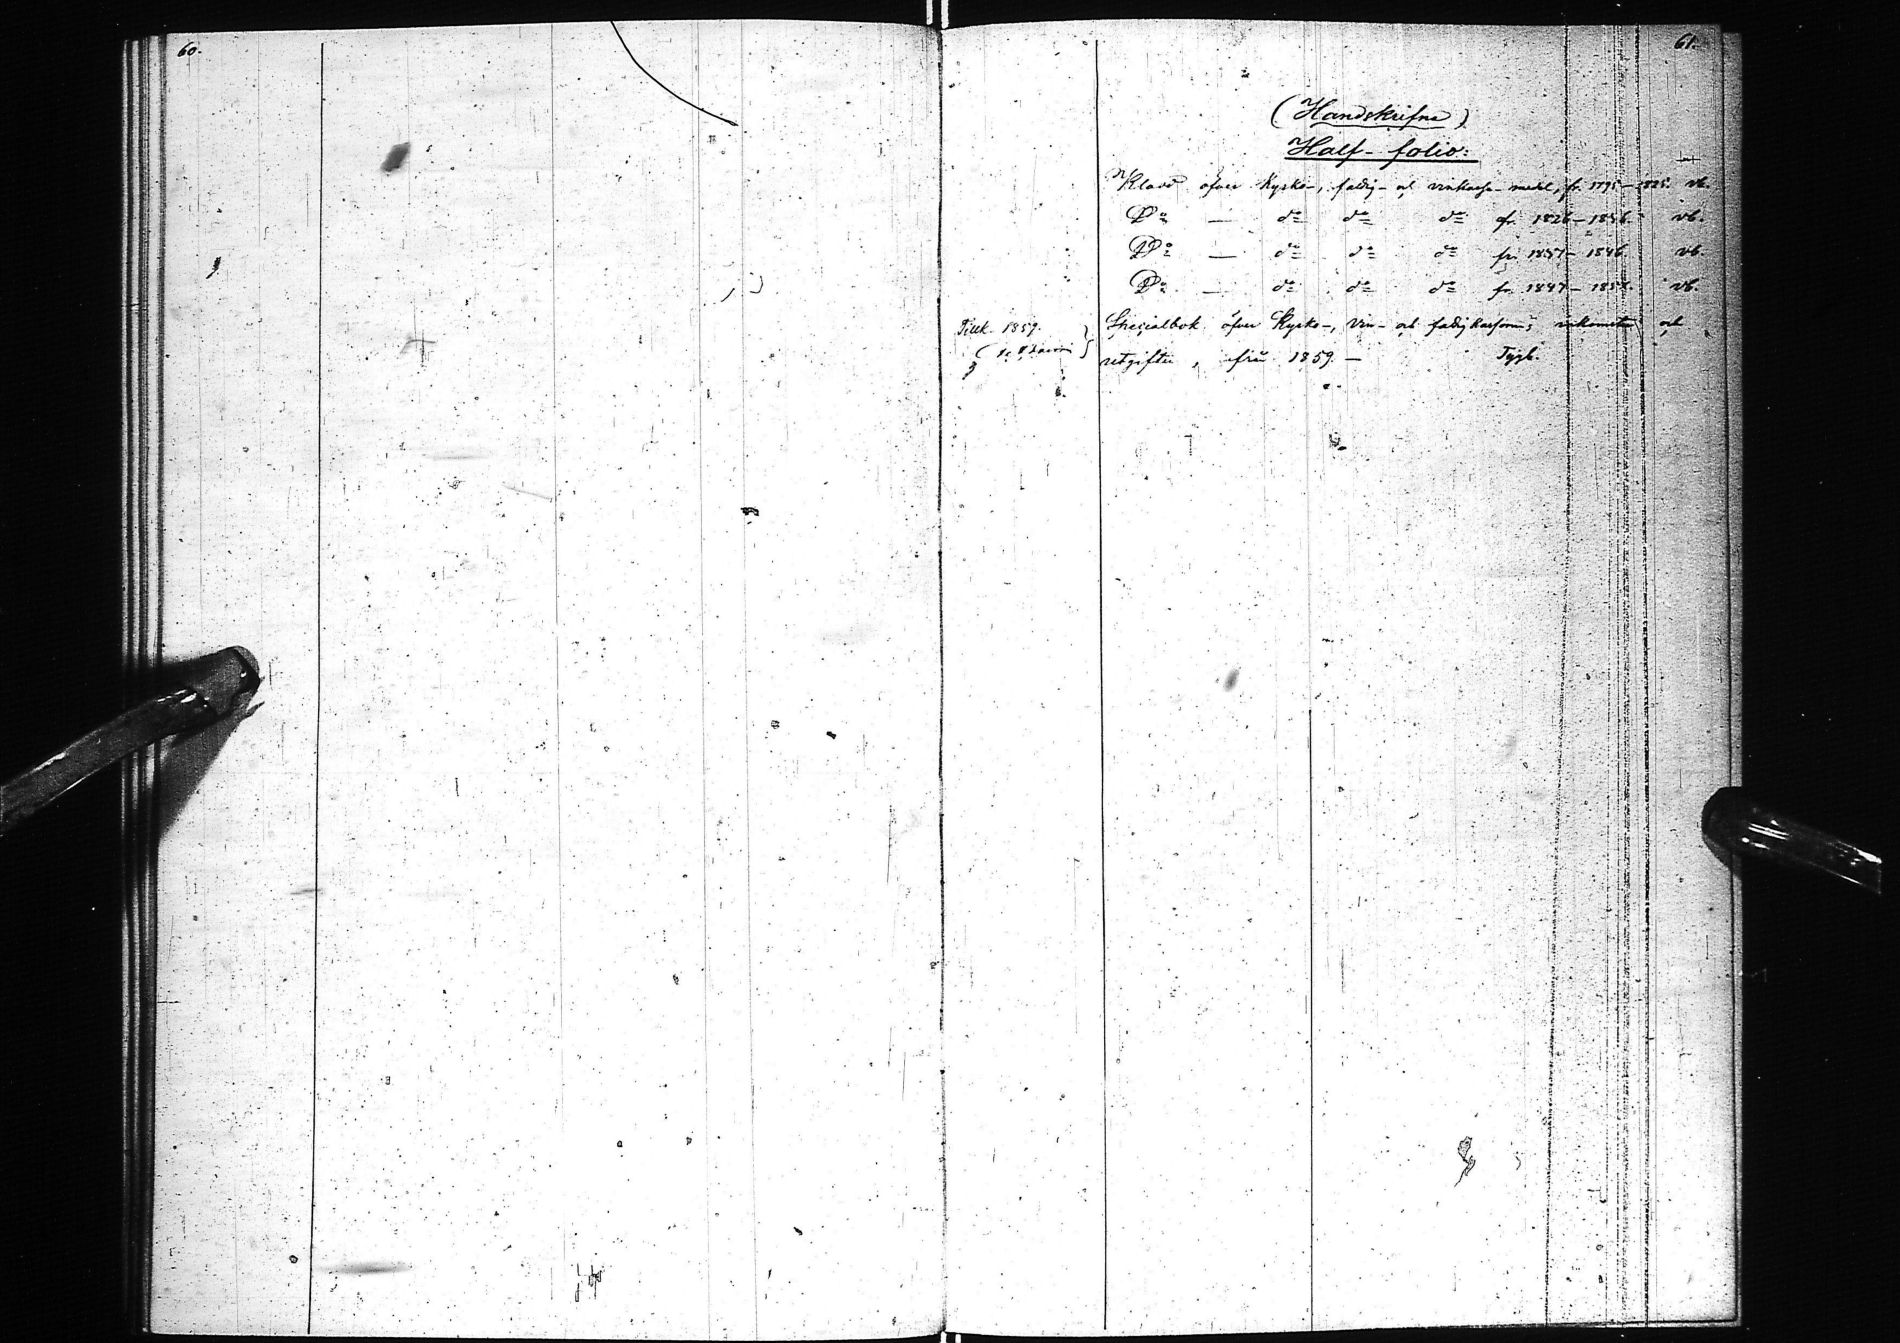 60.
61.
(Handskrifne)
Half-folio:
Kladd öfver Kyrko-, fattig- och vinkasse- medel, fr. 1795-1825. vb.
Do — do do do fr. 1826-1836. vb.
Do — do do do fr. 1837-1846. vb.
Do — do do do fr. 1847-1858. vb.
Tillk. 1859.
Specialbok öfver Kyrko-, vin- och fattigkassornas inkomster och
utgifter, från 1859 —